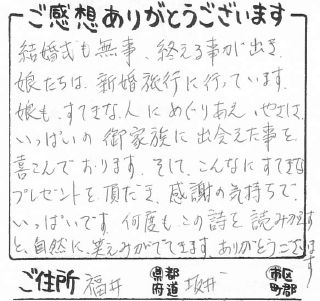 ご感想ありがとうございます
結婚式も無事、終える事が出き
娘たちは、新婚旅行に行っています。
娘も、すてきな人にめぐりあえ、やさしさ
いっぱいの御家族に出会えた事を
喜こんでおります。そして、こんなにすてきな
プレゼントを頂だき、感謝の気持ちで
いっぱいです。何度もこの詩を読みかえす
と、自然に、笑えみがでてきます。ありがとうございます
ご住所 福井 都道府県 坂井 市区町郡